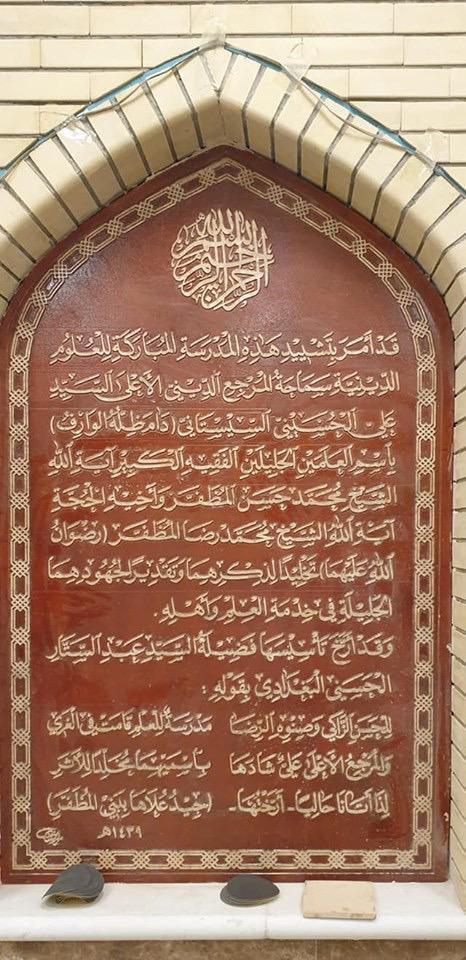 بسم الله الرحمن الرحيم
قَدْ أَمَرَ بِتَشْيِيدِ هٰذِهِ المَدْرَسَةِ المُبَارَكَةِ لِلْعُلُومِ
الدِّينِيَّةِ سَمَاحَةُ المَرْجِعِ الدِّينِيِّ الأَعْلَى السَّيِّد
عَلِي الحُسَيْنِي السِّيسْتَانِي (دَامَ ظِلُّهُ الوَارِفُ)
بِاسْمِ العَلَمَيْنِ الجَلِيلَيْنِ الفَقِيهِ الكَبِيرِ آيَةِ اللهِ
الشَّيْخِ مُحَمَّد حَسَن المُظَفَّر وَأَخِيهِ الحُجَّةِ
آيَةِ اللهِ الشَّيْخِ مُحَمَّد رِضَا المُظَفَّر (رِضْوَانُ
اللهِ عَلَيْهِمَا) تَخْلِيدًا لِذِكْرِهِمَا وَتَقْدِيرًا لِجُهُودِهِمَا
الجَلِيلَةِ فِي خِدْمَةِ العِلْمِ وَأَهْلِهِ.
وَقَدْ أَرَّخَ تَأْسِيسَهَا فَضِيلَةُ السَّيِّدِ عَبْدِ السَّتَّارِ
الحَسَنِي البَغْدَادِي بِقَوْلِهِ :
لِلْحَسَنِ الزَّاكِي وَصِنْوِهِ الرِّضَا مَدْرَسَةٌ لِلْعِلْمِ قَامَتْ فِي الغَرِي
وَالمَرْجِعُ الأَعْلَى عَلِيٌّ شَادَهَا بِاسْمِهِمَا مُخَلِّدًا لِلأَثَرِ
لِذَا أَتَانَا حَالِيًا - أَرَّخْتُهَا - (جِيدُ عُلَاهَا بِبَنِي المُظَفَّرِ)
١٤٣٩هـ